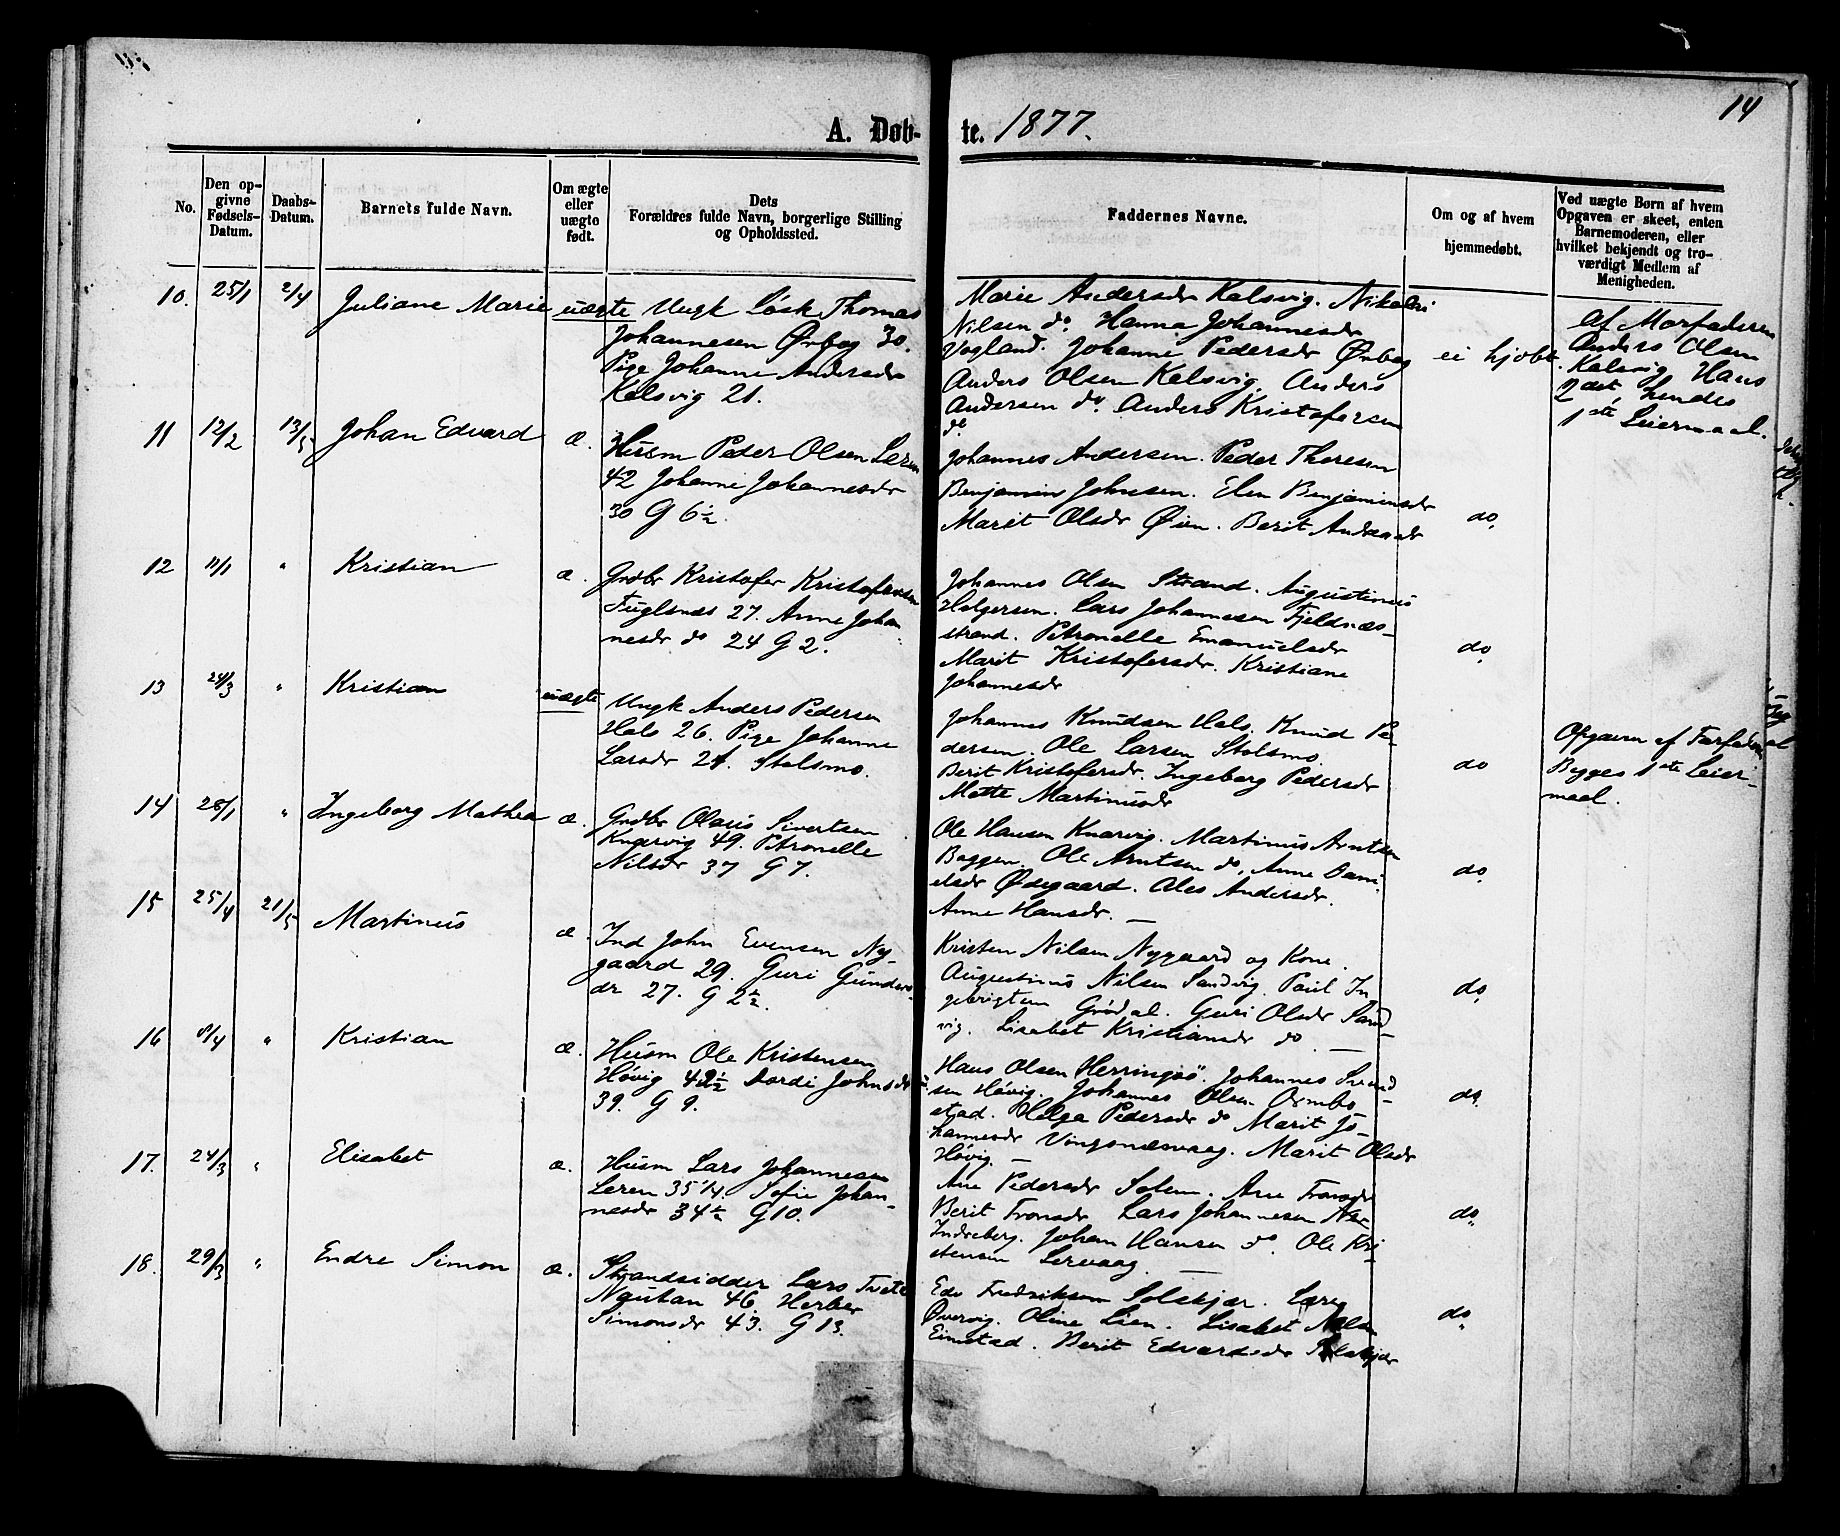 14
A. Døb- te. 1877.
No.
Den op-
givne
Fødsels-
Datum.
Daabs-
Datum.
Barnets fulde Navn.
Om ægte
eller
uægte
født.
Dets
Forældres fulde Navn, borgerlige Stilling
og Opholdssted.
Faddernes Navne.
Om og af hvem
hjemmedøbt.
Ved uægte Børn af hvem
Opgaven er skeet, enten
Barnemoderen, eller
hvilket bekjendt og tro-
værdigt Medlem af
Menigheden.
10. 25/1 2/4 Juliane Marie uægte Ungk Løsk Thomas
Johannesen Ørbog 30.
Pige Johanne Andersdr
Kalsvig 21.
Marie Andersdr Kalsvig. Nikolai
Nilsen do. Hanna Johannesdr
Vogland. Johanne Pedersdr Ørbog
Anders Olsen Kalsvig. Anders
Andersen do. Anders Kristofersen
do
ei hjdbt.
af Morfaderen
Anders Olsen
Kalsvig Hans
2det, hendes
1ste Leiermaal.
11 12/2 13/5 Johan Edvard æ. Husm Peder Olsen Leren
42 Johanne Johannesdr
30 G 6½.
Johannes Andersen. Peder Theresen
Benjamin Johnsen. Elen Benjaminsdr
Marit Olsdr Øien. Berit Andersdr
do.
12 11/1 " Kristian æ. Grdbr Kristofer Kristofersen
Fuglsnes 27. Anne Johan
nesdr do 24 G 2.
Johannes Olsen Strand. Augustinus
Holgersen. Lars Johannesen Fjeldnæs-
strand. Petronelle Emanuelsdr
Marit Kristofersdr. Kristiane
Johannesdr
do.
13 24/3 " Kristian uægte Ungk Anders Pedersen
Hals 26. Pige Johanne
Larsdr 24. Stolsmo.
Johannes Knudsen Hals. Knud Pe-
dersen. Ole Larsen Stolsmo.
Berit Kristofersdr. Ingeborg Pedersdr
Mette Martinusdr
do
Opgaven af Farfaderen
Begges 1ste Leier-
maal.
14 28/1 " Ingeborg Mathea æ. Grdbr Olaus Sivertsen
Knarvig 49. Petronelle
Nilsdr 37 G 7.
Ole Hansen Knarvig. Martinus Arntsen
Baggen. Ole Arntsen do. Anne Dani-
elsdr Ødegaard. Ales Andersdr.
Anne Hansdr. —
do.
15 25/4 21/5 Martinus æ. Ind John Evensen Ny-
gaard 29. Guri Gunders-
dr 27. G 2½.
Kristen Nilsen Nygaard og Kone.
Augustinus Nilsen Sandvig. Paul In
gebrigtsen Grødal. Guri Olsdr Sand-
vig. Lisabet Kristiansdr do. —
do.
16 8/4 " Kristian æ. Husm Ole Kristensen
Høvig 42½ Dordi Johnsdr
39. G 9.
Hans Olsen Herringsø. Johannes Svend-
sen Høvig. Johannes Olsen Ormbo
stad. Helga Pedersdr do Marit Jo-
hannesdr Vingsnæsvaag. Marit Olsdr
Høvig. —
do.
17. 24/3 " Elisabet æ. Husm Lars Johannesen
Leren 35¼. Sofie Johan-
nesdr 34½ G 10.
Ane Pedersdr Solem. Ane Tronsdr
Berit Tronsdr Lars Johannesen
Indreberg. Johan Hansen do. Ole Kri-
stensen Lervaag. —
do.
18. 29/3 " Endre Simon æ. Strandsidder Lars Tvete
Naustan 46. Herber
Simonsdr 43. G 13.
Edv Fredriksen Solskjær. Lars
Øvervig. Oline Lien. Lisabet
Eimstad. Berit Edvardsdr Solskjær
do.